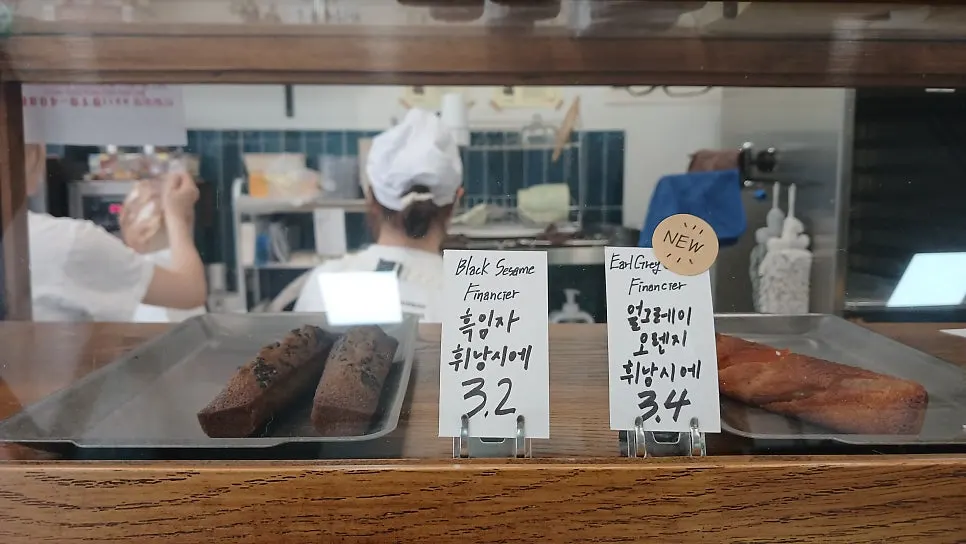 Black Sesame
Financier
흑임자
휘낭시에
3.2
NEW
Earl Grey
Financier
얼그레이
오렌지
휘낭시에
3.4